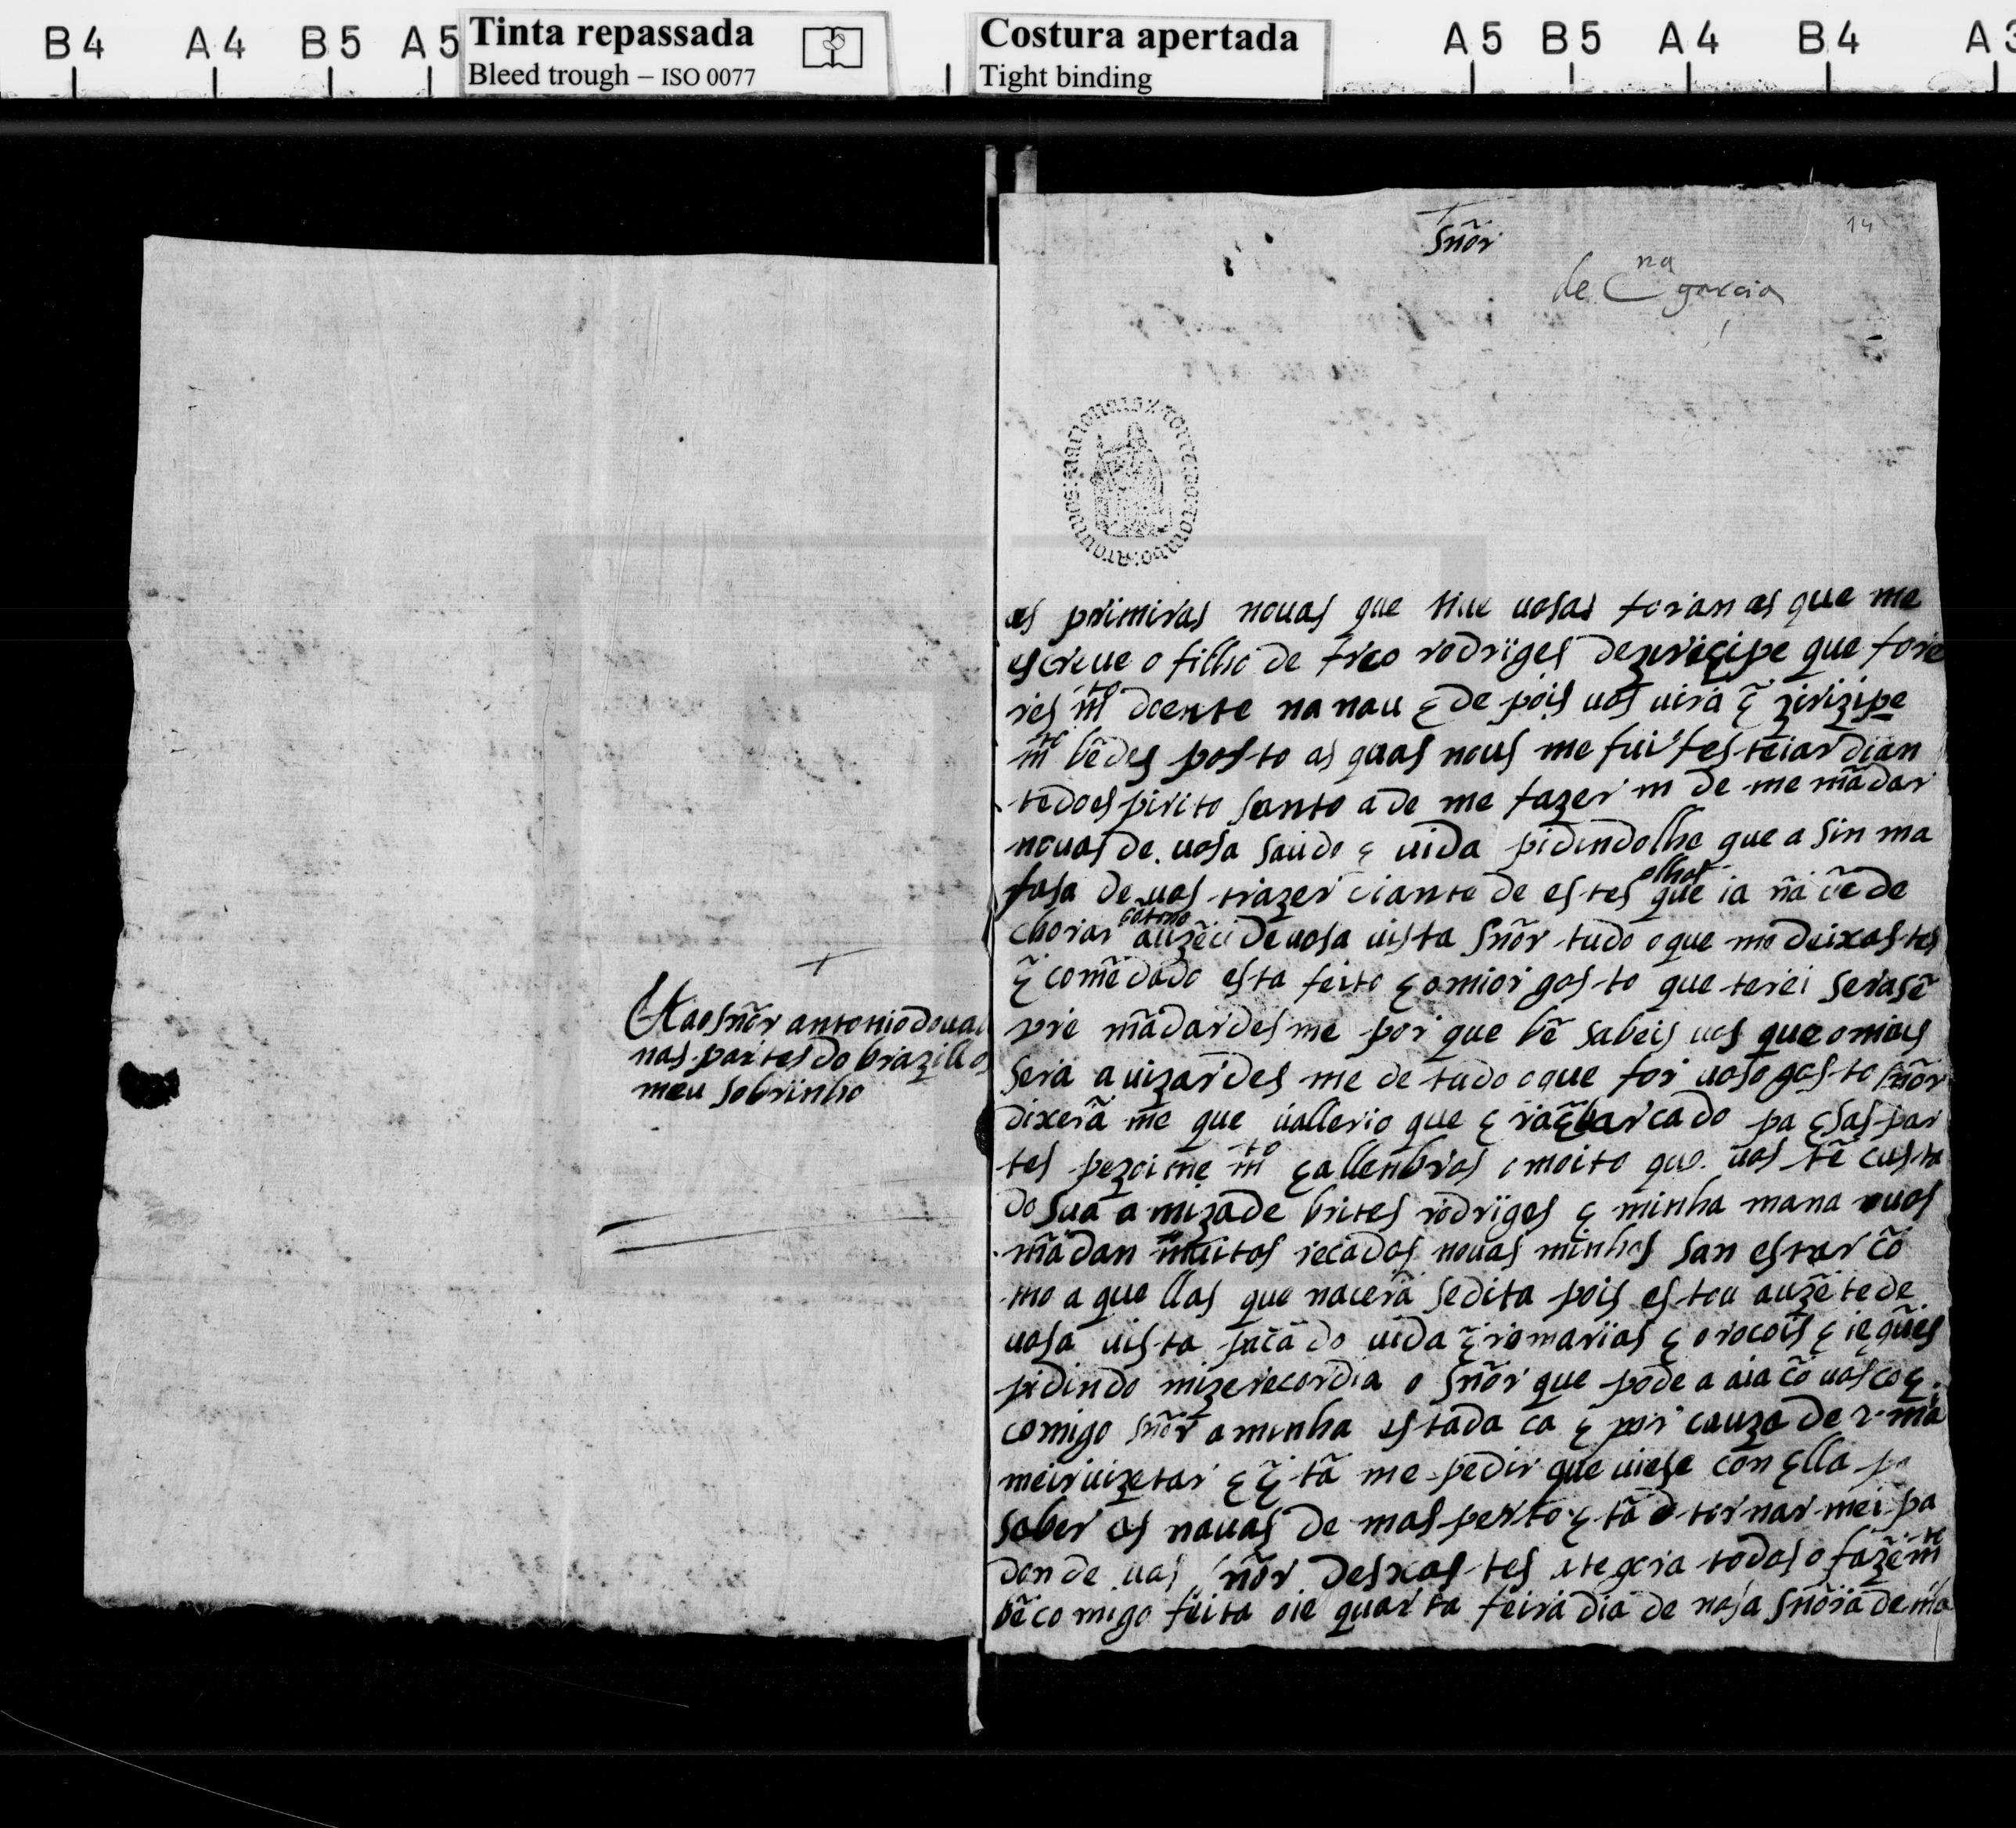 B4 A4 B5 A5
Tinta repassada
Bleed trough – ISO 0077
Costura apertada
Tight binding
A5 B5 A4 B4 A3
Ao sñor antonio doual
nas partes do brazill o
meu sobrinho
14
Sñor
de Cna garcia
as primiras nouas que tiue uosas foran as que me
escreue o filho de frco rodriges de priçipe que fore
reis mto doente na nau e de pois uos uira ẽ pirizipe
mto bẽ des posto as quas nouas me fui festeiar dian
te do espirito santo a de me fazer m de me mãdar
nouas de uosa saude e uida pidindolhe que a sin ma
fasa de uos trazer diante de estes olhos que ia nã ce de
chorar cõtino auzẽcia de uosa uista Sñor tudo o que me deixastes
ẽ comẽdado esta feito e o mior gosto que terei sera sẽ
pre mãdardes me por que bẽ sabeis uos que o mais
sera auizardes me de tudo o que for uoso gosto sñor
dixerã me que uallerio que era ẽbarcado pa esas par
tes pezoime mto e allenbros o moito que uos tẽ custa
do sua amizade brites rodriges e minha mana uos
mãdan muitos recados nouas minhas san estar cõ
mo a quellas que nacerã sedita pois estou auzẽte de
uosa uista pasãdo uida ẽ romarias e orocois e ieqũes
pidindo mizerecordia o sñor que pode a aia cõ uosco e
comigo sñor a minha estada ca e por cauza de
me ir uizetar e ẽ tã me pedir que uiese con ella pa
saber as nauas de mas perto e tã de tornar mei pa
donde uos sñor desxastes todos o fazẽ mte
bẽ comigo feita oie quarta feira dia de nosa sñora de